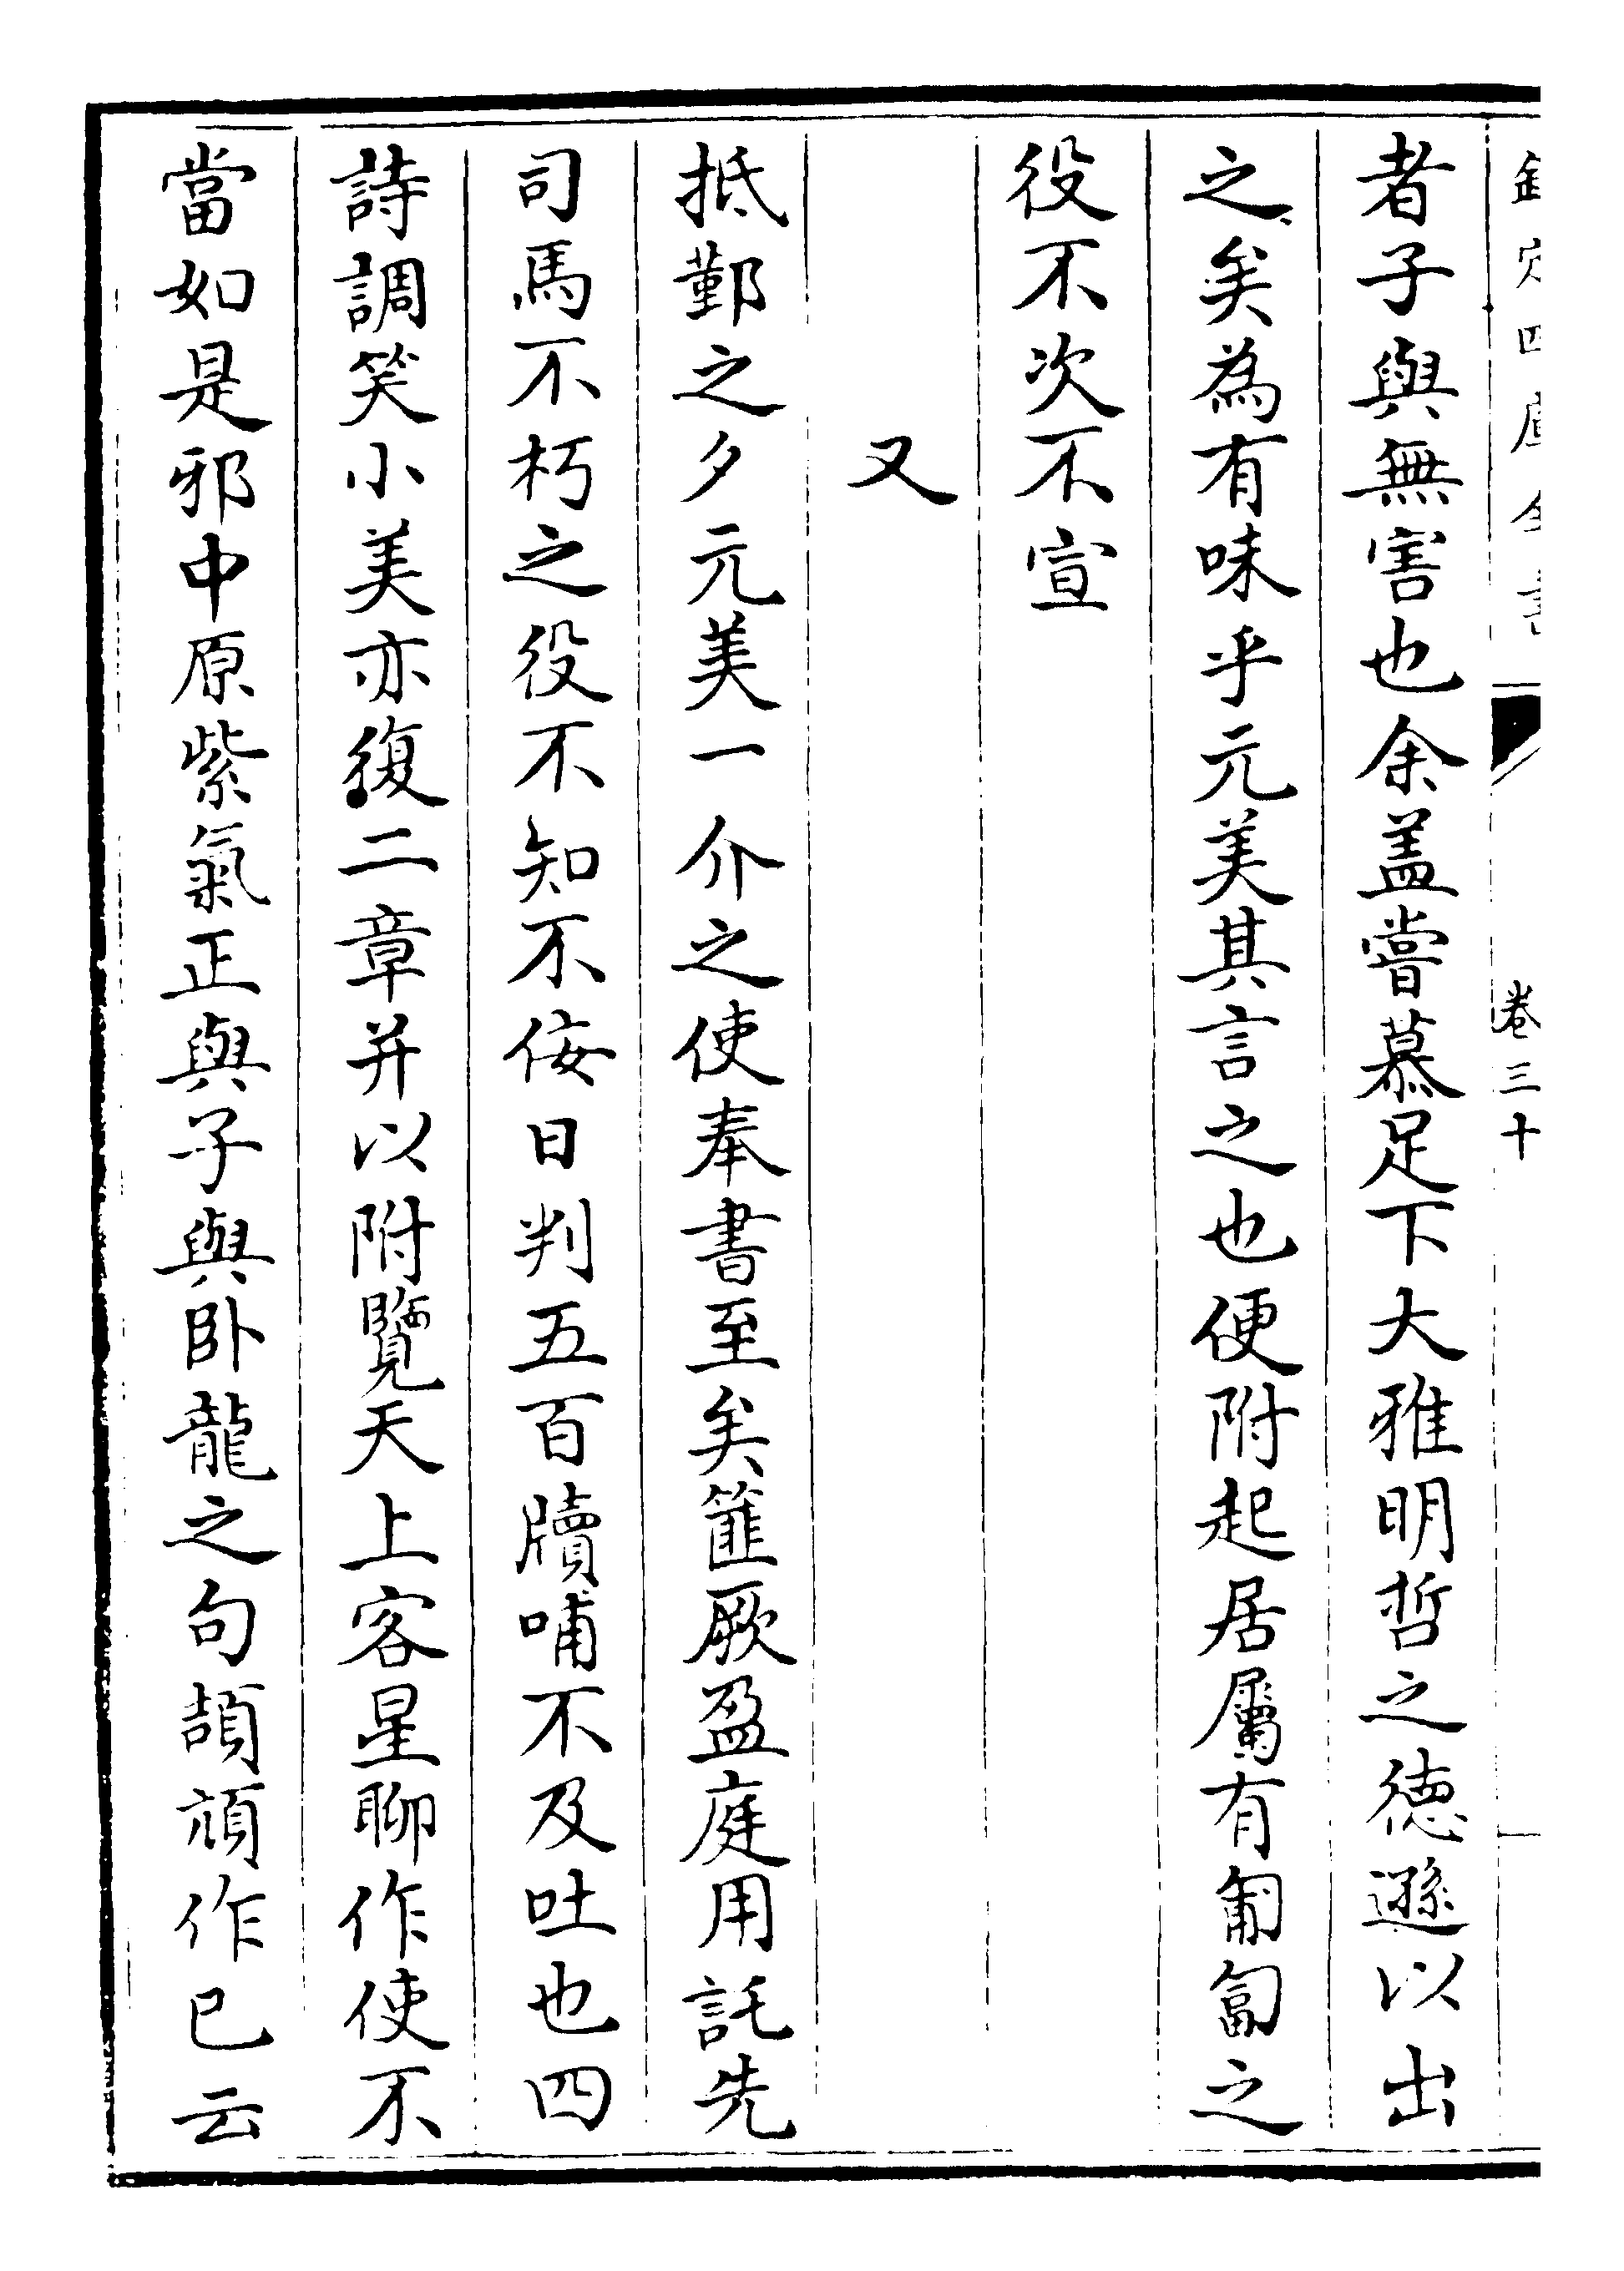 欽定四庫全書 卷三十
者子與無害也余盖嘗慕足下大雅明哲之徳遜以出
之矣為有味乎元美其言之也便附起居屬有匍匐之
役不次不宣
又
抵鄞之夕元美一介之使奉書至矣篚厥盈庭用託先
司馬不朽之役不知不佞日判五百牘哺不及吐也四
詩調笑小美亦復二章并以附覽天上客星聊作使不
當如是邪中原紫氣正與子與卧龍之句頡頏作已云